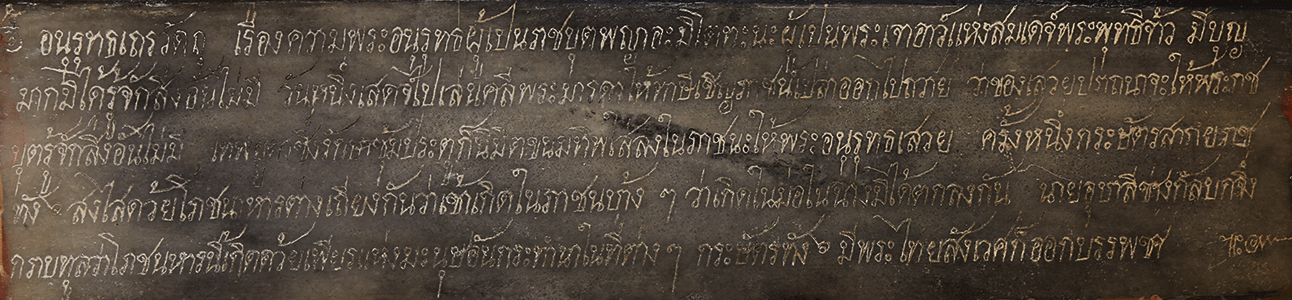 อนุรุทธเถรวัตถุ เรื่องความพระอนุรุทธผู้เป็นราชบุตพญาอะมิโตทะนะผู้เป็นพระเจาอาว์แห่งสมเด็จ์พระพุทธิจ้าว มีบุญ
มากมิได้รู้จักสิ่งอันไม่มี วันหนึ่งเสด็จไปเล่นคลีพระมารดาให้ทาษีเชิญราชนะเปล่าออกไปถวาย ว่าของเสวยปรถนาจะให้พระราช
บุตรู้จักสิ่งอันไม่มี เทพยุดาซึ่งรักษาซุ้มประตูก็นิมิตขนมทิพใส่ลงในราชนะให้พระอนุรุทธเสวย ครั้งหนึ่งกระษัตรสากยราช
ทัง สงไส่ด้วยโภชนาหารต่างเถียงกันว่าเข้าเกิดในราชนบ้าง ๆ ว่าเกิดในม่อในนางมิได้ตกลงกัน นายอุบาลีช่างกัลบกจึ่ง
กราบทูลว่าโภชนหารนี้เกิดด้วยเพียรแห่งมะนุษอันกระทำนาในที่ต่าง ๆ กระษัตรทัง ๖ มีพระไทยสังเวคก็ออกบรรพชา